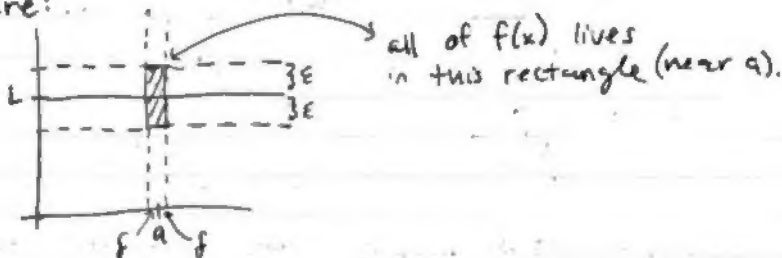 ure:
all of f(x) lives
in this rectangle (near a).
}ε
L
}ε
δ a δ